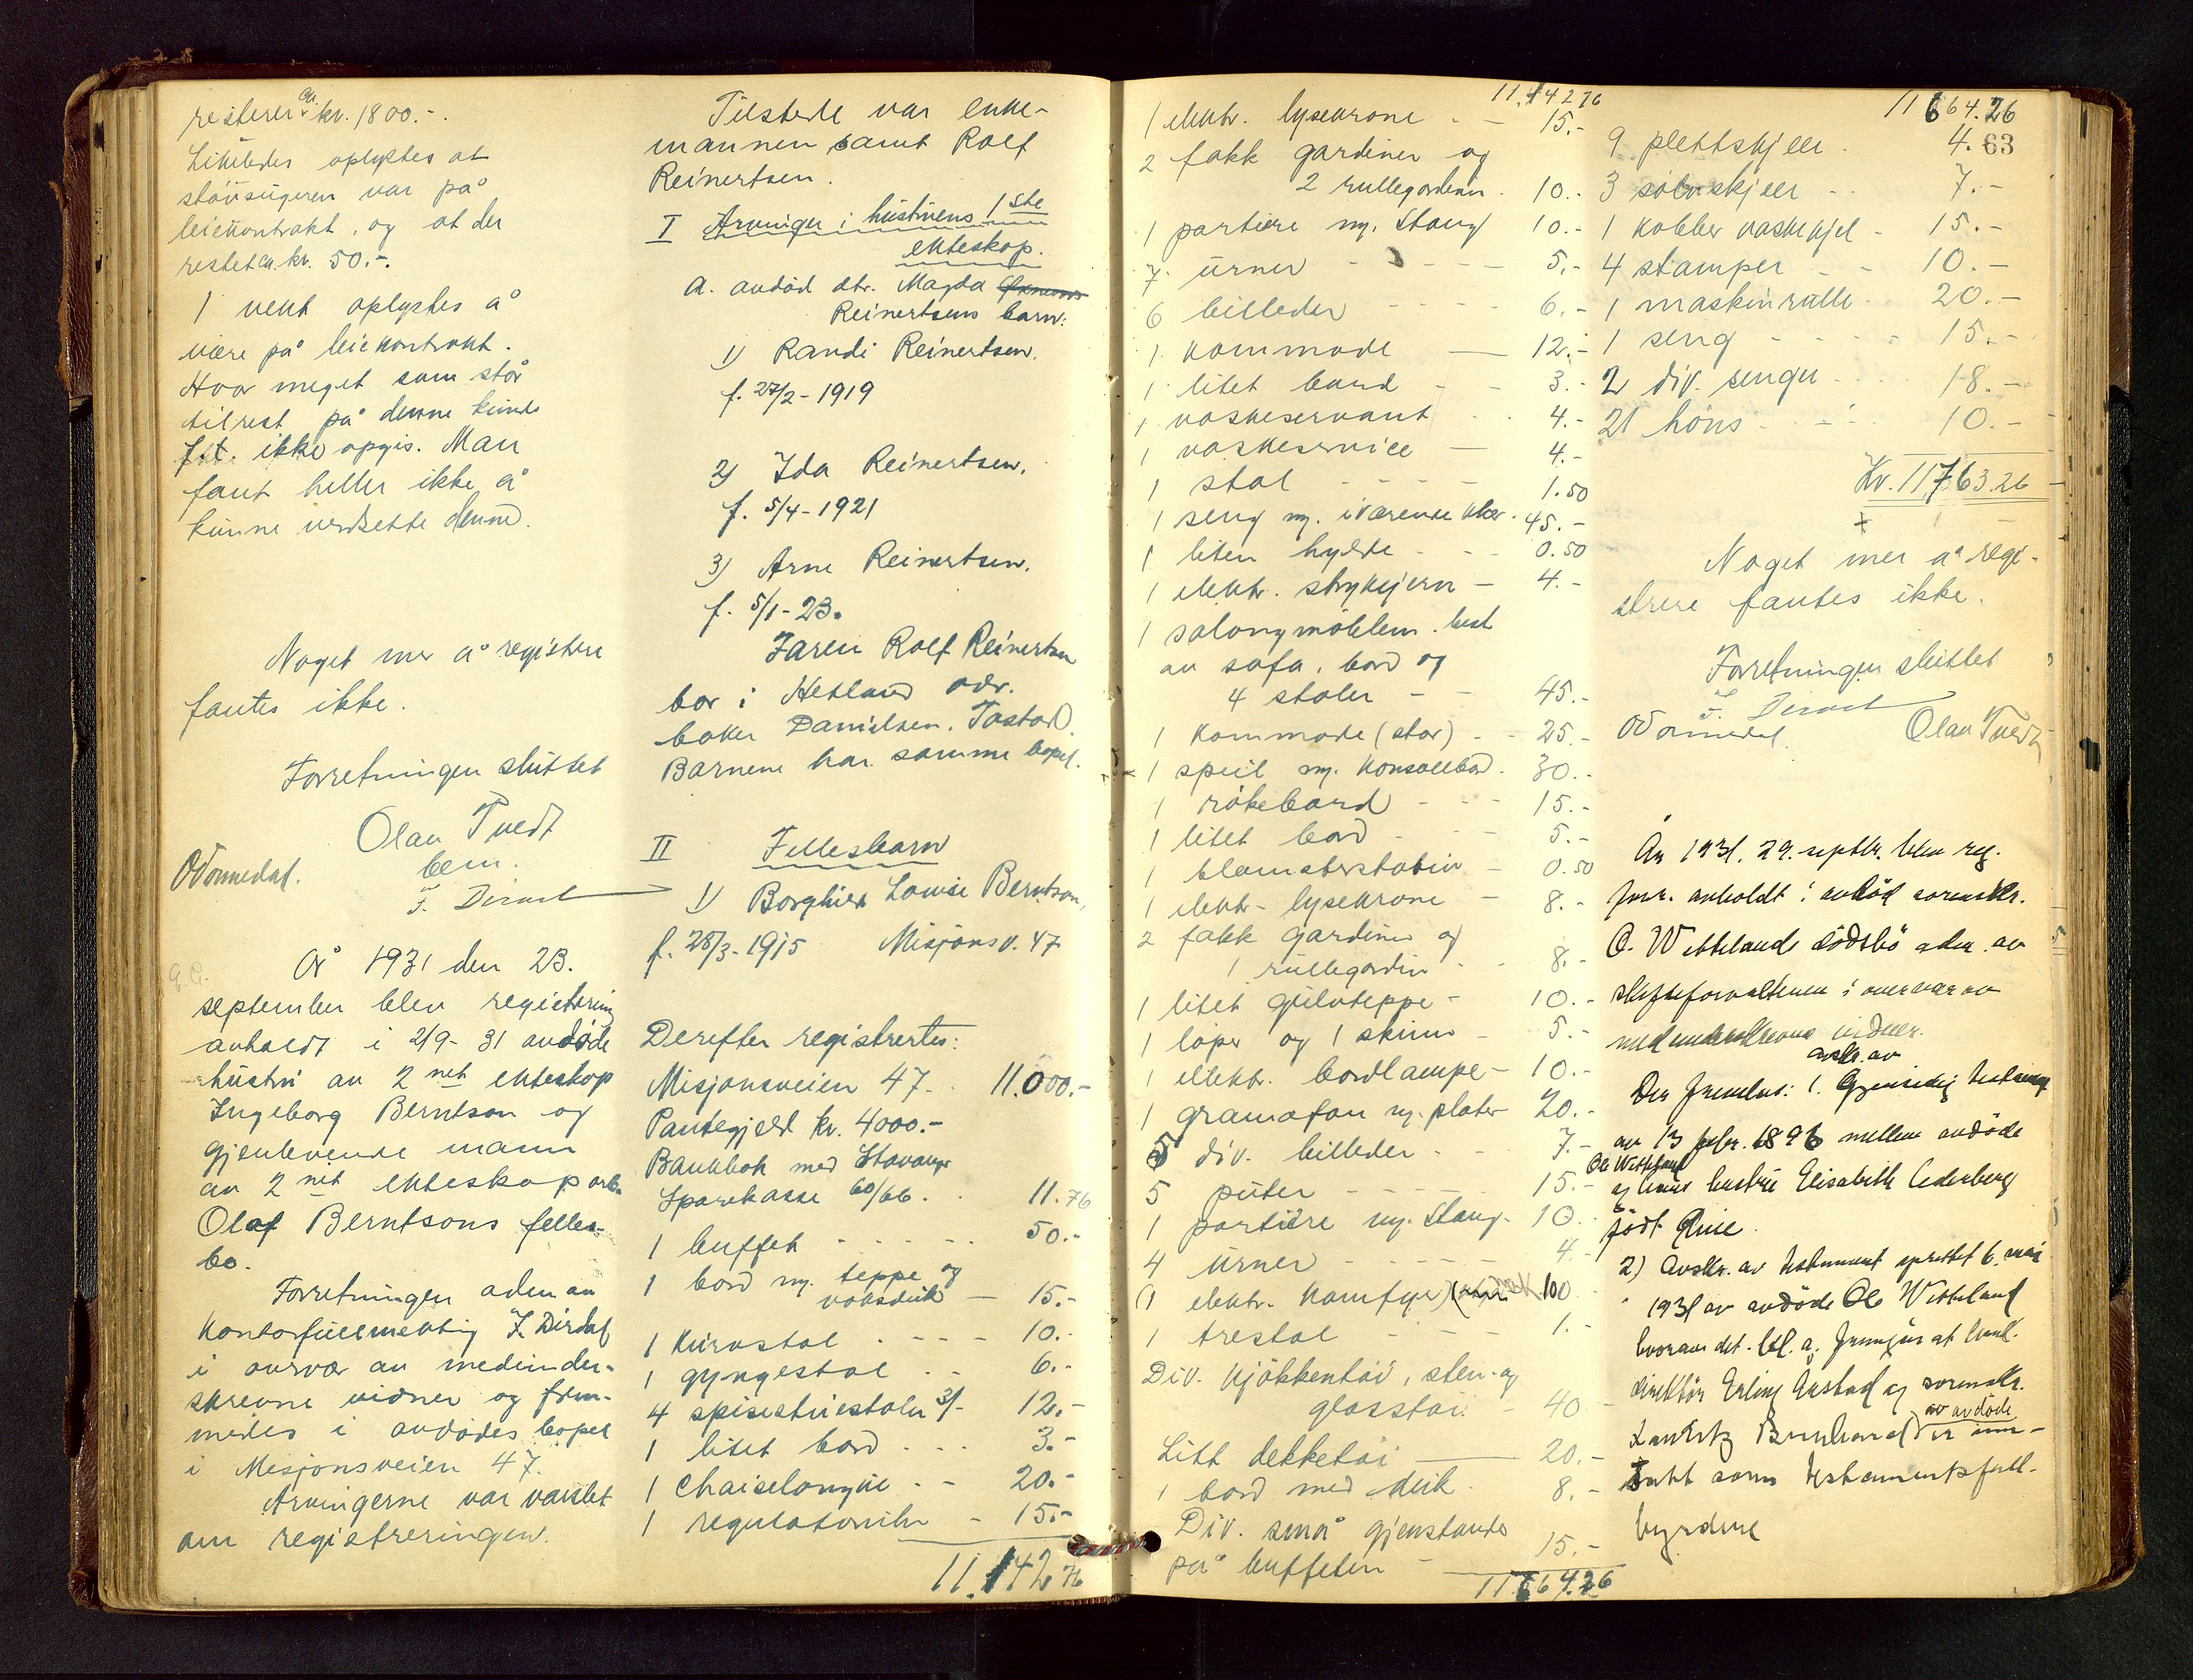 resterer ca. kr. 1800.-.
Likeledes oplystes at
støvsugeren var på
leiekontrakt, og at der
restet ca. kr. 50.-.
1 vekt oplystes å
være på leiekontrakt.
Hvor meget som står
tilrest på denne kunde
f.t. ikke opgis. Man
fant heller ikke å
kunne verdsette denne.
Noget mer å registrere
fantes ikke.
Forretningen sluttet
Olav Tvedt
bem.
O Tonnedal.
F. Dirdal
År 1931 den 23.
september blev registrering
avholdt i 2/9-31 avdøde
hustru av 2net ekteskap
Ingeborg Berntson og
gjenlevende mann
av 2net ekteskap arb.
Olaf Berntsons felles-
bo.
Forretningen adm av
kontorfullmektig F. Dirdal
i overvær av medunder-
skrevne vidner og frem-
medes i avdødes bopel
i Misjonsveien 47.
Arvingerne var varslet
om registreringen.
Tilstede var enke-
mannen samt Rolf
Reinertsen.
I Arvinger i hustruens 1ste
ekteskap.
a. avdød dtr. Magda
Reinertsens barn:
1) Randi Reinertsen.
f. 27/2-1919
2) Ida Reinertsen.
f. 5/4-1921
3) Arne Reinertsen.
f. 5/1-23.
Faren Rolf Reinertsen
bor i Hetland adr.
baker Danielsen. Tastad.
Barnene har samme bopel.
II Fellesbarn
1) Borghild Louise Berntson,
f. 28/3-1915 Misjonsv. 47
Derefter registrertes:
Misjonsveien 47. 11.000.-
Pantegjeld kr. 4000.-
Bankbok med Stavanger
Sparekasse 60/66. 11.76
1 buffet - - - - - 50.-
1 bord m. teppe og
voksduk - 15.-
1 kurvstol - - - - 10.-
1 gyngestol - - 6.-
4 spisestuestoler 3/- 12.-
1 litet bord - - - 3.-
1 Chaiselongue - - 20.-
1 regulatoruhr - 15.-
11.142.76
11.142.76
1 elektr. lysekrone - - 15.-
2 fakk gardiner og
2 rullegardiner. 10.-
1 portiere m. stang 10.-
7 urner - - - - 5.-
6 billeder - - - - 6.-
1 kommode - 12.-
1 litet bord - - 3.-
1 vaskeservant - - 4.-
1 vaskeservice - 4.-
1 stol - - - - 1.50
1 seng m. iværende klær. 45.-
1 liten hylde - - - 0.50
1 elektr. strykejern - 4.-
1 salongmøblem. best
av sofa, bord og
4 stoler - - 45.-
1 kommode (stor) - - 25.-
1 speil m. konsollbord. 30.-
1 røkebord - - - 15.-
1 litet bord - - 5.-
1 blomsterstativ - 0.50
1 elektr- lysekrone - 8.-
2 fakk gardiner og
1 rullegardin - - 8.-
1 litet gulvteppe - 10.-
1 løper og 1 skinn - 5.-
1 elektr. bordlampe - 10.-
1 gramofon m. plater 20.-
5 div. billeder - - 7.-
5 puter - - - - 15.-
1 portiere m. stang. 10.-
4 urner - - - - 4.-
1 elektr. komfyr) 100
1 trestol - - - 1.-
Div. kjøkkentøi, sten- og
glasstøi. - 40.-
Litt dekketøi - 20.-
1 bord med duk. 8.-
Div. små gjenstander
på buffeten - 15.-
11664.26
11664.26
63
9 plettskjeer. 4.-
3 sølvskjeer - - 7.-
1 kobber vaskekjel - 15.-
4 stamper - - 10.-
1 maskinrulle - - 20.-
1 seng - - - - 15.-
2 div. senger - - 18.-
21 høns - - - - 10.-
Kr. 11763.26
Noget mer å regi-
strere fantes ikke.
Forretningen sluttet
F. Dirdal
O Tonnedal. Olav Tvedt
År 1931, 29. septbr. blev reg.
forr. avholdt i avdød sorenskr.
O. Wetteland dødsbo adm. av
skifteforvalteren i overvær av
medunderskrevne vidner.
Der fremlaa: 1. avskr. av Gjensidig testament
av 13 febr. 1896 mellem avdøde
Ole Wetteland
og hans hustru Elisabeth Cederberg
født
2) Avskr. av testament oprettet 6. mai
1931 av avdøde Ole Wetteland
hvorav det bl. a. fremgår at bank-
direktør Erling Austad og sorenskr.
Lauritz Bernhard av avdøde er inn-
satt som testamentsfull-
byrdere